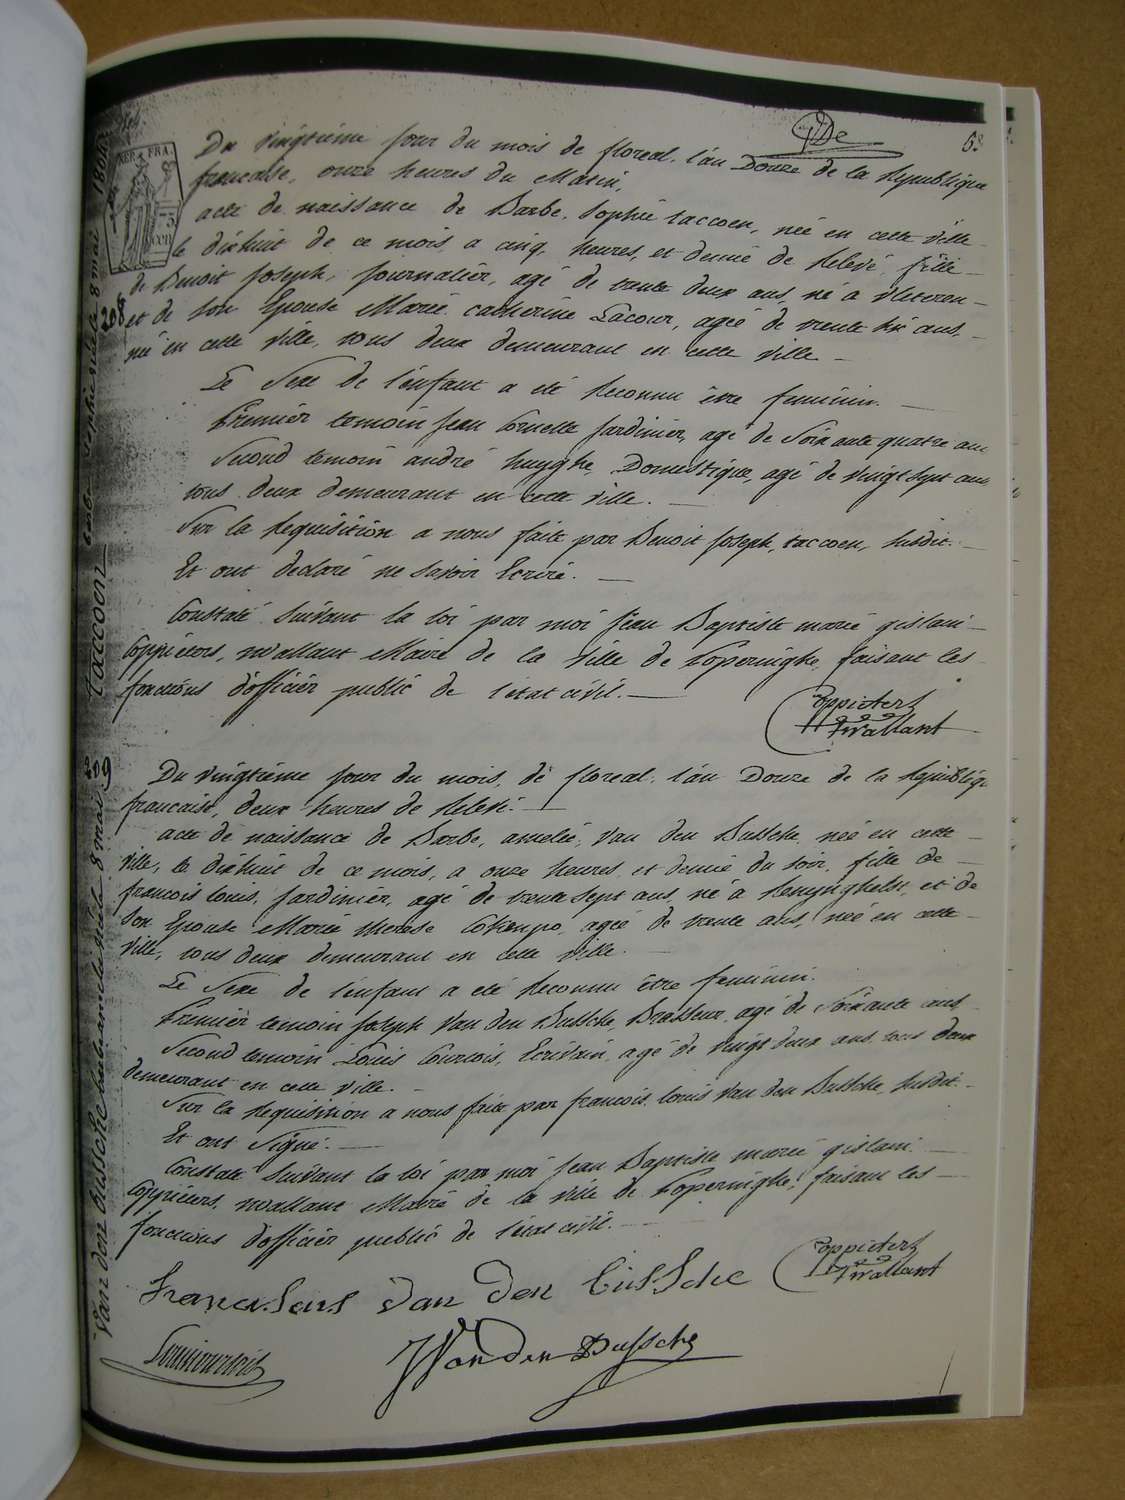 68
REP. FRA.
Du vingtième jour du mois de floreal, l'an Douze de la Republique
francaise, onze heures du Matin,
acte de naissance de Barbe, Sophie taccoen, née en cette ville
le dixhuit de ce mois, a cinq heures, et demie de Relevé, fille
de Benoit Joseph, Journalier, agé de trente deux ans, né à Vleteren
208
et de son Epouse Marie Catherine Lacour, agée de trente six ans,
née en cette ville, tous deux demeurant en cette ville
Le Sexe de l'enfant a été Reconnu être feminin.
Premier temoin Jean Cornette Jardinier, agé de Soixante quatre ans
Second temoin andré huyghe, Domestique, agé de vingt sept ans
tous deux demeurant en cette ville.
Sur la Requisition a nous faite par Benoit Joseph, taccoen, susdit.
Et ont declaré ne savoir Ecrire.
Constaté Suivant la loi par moi Jean Baptiste marie gislain
Coppieters, t'wallant Maire de la Ville de Poperinghe, faisant les
fonctions d'officier public de l'état civil.
Coppieters
t'wallant
taccoen
209
Du vingtième jour du mois, de floreal, l'an Douze de la Republiq
francaise, deux heures de Relevé.
acte de naissance de Barbe, amelie, Van den Bussche, née en cette
ville, le dixhuit de ce mois, a onze heures et demie du soir, fille de
francois louis, Jardinier, agé de trente sept ans, né à Renynghelst, et de
son Epouse Marie therese agée de trente ans, née en cette
ville, tous deux demeurant en cette ville.
Le Sexe de l'enfant a été Reconnu être feminin.
Premier temoin Joseph Van den Bussche, Brasseur, agé de Soixante ans
Second temoin Louis Courtois, Ecrivain, agé de vingt deux ans, tous deux
demeurant en cette ville.
Sur la Requisition a nous faite par francois louis Van den Bussche, susdit.
Et ont Signé.
Constaté Suivant la loi par moi Jean Baptiste marie gislain
Coppieters, t'wallant Maire de la Ville de Poperinghe, faisant les
fonctions d'officier public de l'état civil.
Van den bussche
Coppieters
t'wallant
Van Den bussche
VandenBussche